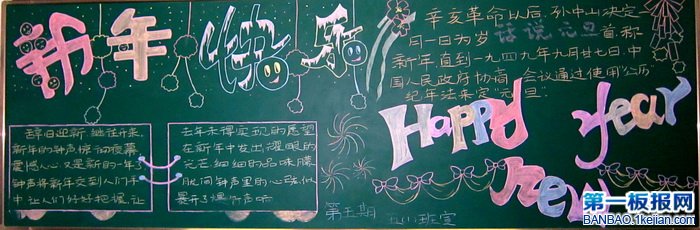 新年快乐
辛亥革命以后,孙中山决定
月一日为岁
话说元旦
首,称
新年,直到一九四九年九月廿七日,中
国人民政府协商 会议通过使用"公历
纪年法来定"元旦"
辞旧迎新,继往开来,
新年的钟声惊动夜幕
震撼人心,又是新的一年了
钟声将新年交到人们手
中,让人们好好把握,让
去年未得实现的愿望
在新年中发出耀眼的
光芒,细细的品味
间钟声里的心弦,似
Happy year
new
第五期
班宣
第一板报网
BANBAO.1kejian.com